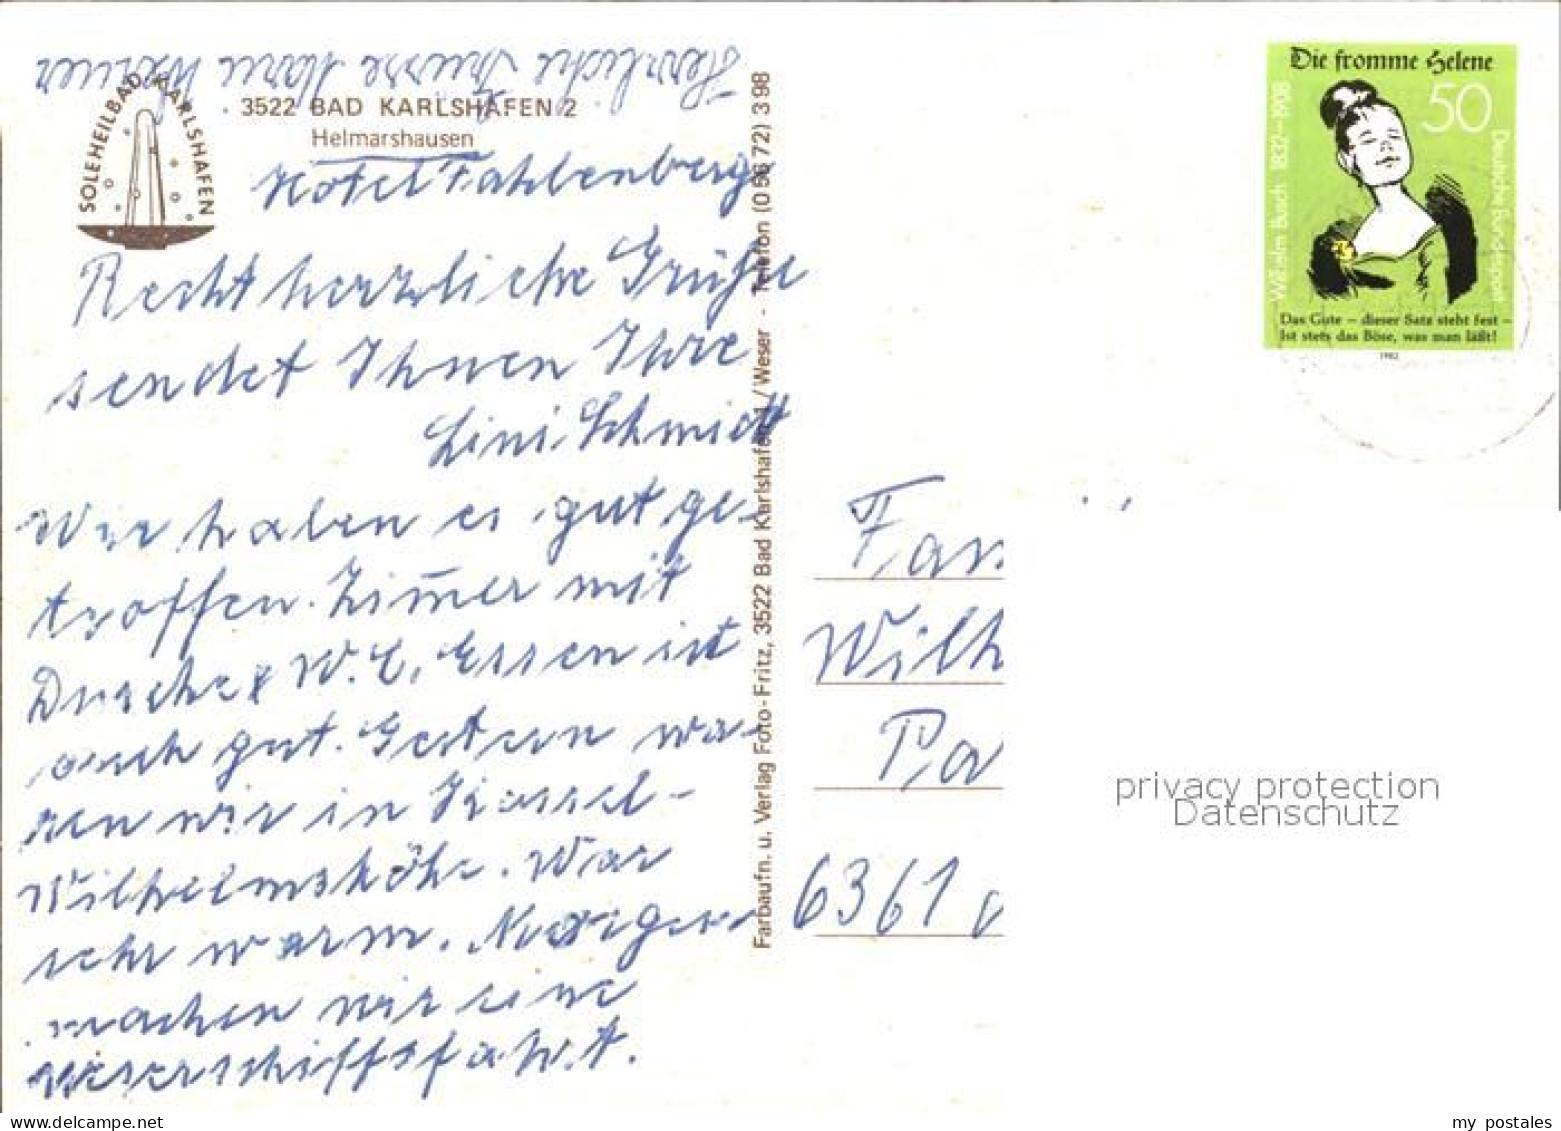 Herrliche Grüsse Maria Werner
SOLEHEILBAD KARLSHAFEN
3522 BAD KARLSHAFEN 2
Helmarshausen
Hotel Fahlenberg
Recht herzliche Grüße
sendet Ihnen Ihre
Lini Schmidt
Wir haben es gut ge-
troffen. Zimmer mit
Dusche & W.C. Essen ist
auch gut. Gestern wa-
ren wir in Kassel-
Wilhelmshöhe. War
sehr warm. Morgen
machen wir eine
Weserschiffsfahrt.
Farbaufn. u. Verlag Foto-Fritz, 3522 Bad Karlshafen 1/Weser - Telefon (0 56 72) 3 98
Die fromme Helene
50
Wilhelm Busch 1832–1908
Deutsche Bundespost
Das Gute – dieser Satz steht fest –
Ist stets das Böse, was man läßt!
1982
Fam
Wilh
Ra
6361
privacy protection
Datenschutz
my postales